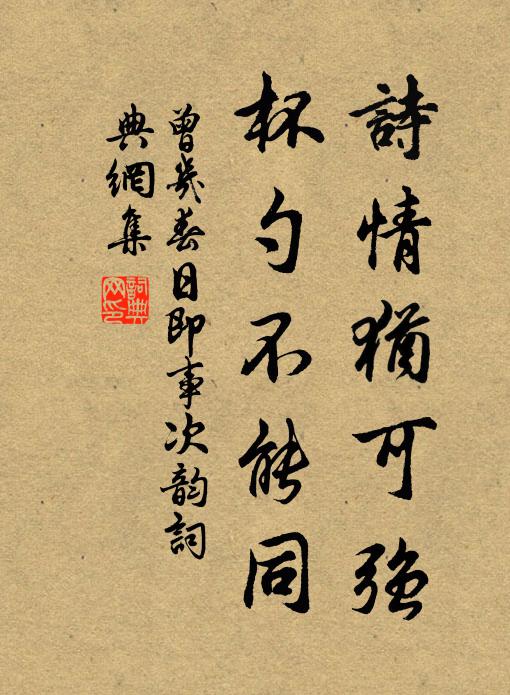 詩情猶可強
杯勺不能同
曾幾春日即事次韵詞
典網集
詞典
网印